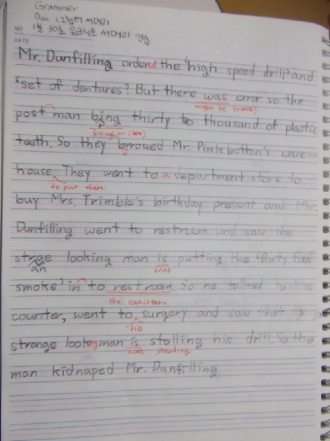 Grammer
DATE
Mr. Dunfilling orderd the 'high speed drill' and
'set of dentures'! But there was error so the
post man bring thirty to thousand of plastic
teeth. So they brrowed Mr. Pinkbotton's ware
house. They went to a department store to
to put them
buy Mrs. Trimble's birthday present and Mr.
Dunfilling went to restroom and saw the
strage looking man is putting the 'Party Time
an
was
smoke' in to restroom. So he talked to the
counter, went to surgery and saw that
his
strange looking man is stolling his drill. So the
was stealing
man kidnaped Mr. Dunfilling